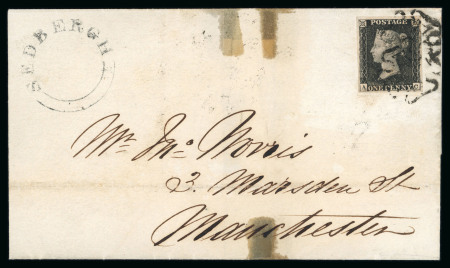 SEDBERGH
POSTAGE
ONE PENNY
Mr. Jno. Norris
3. Marsden St
Manchester